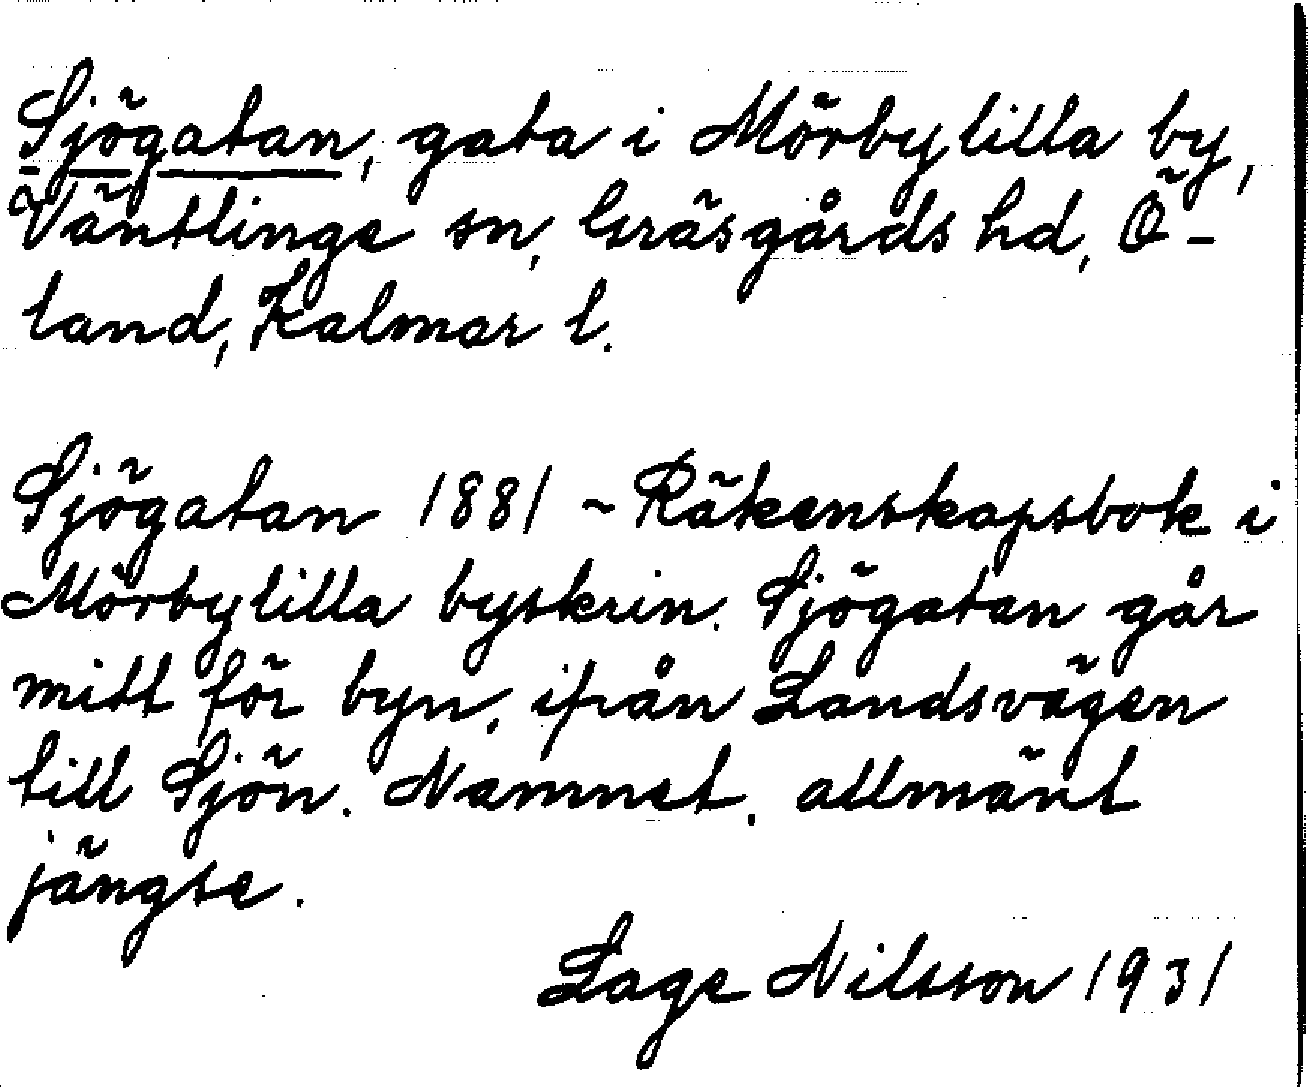 Sjögatan, gata i Mörbylilla by,
Ventlinge sn, Gräsgårds hd, Ö-
land, Kalmar l.
Sjögatan 1881 ~ Räkenskapsbok i
Mörbylilla byskrin. Sjögatan går
mitt för byn, ifrån Landsvägen
till Sjön. Namnet, allmänt
jängse.
Lage Nilsson 1931